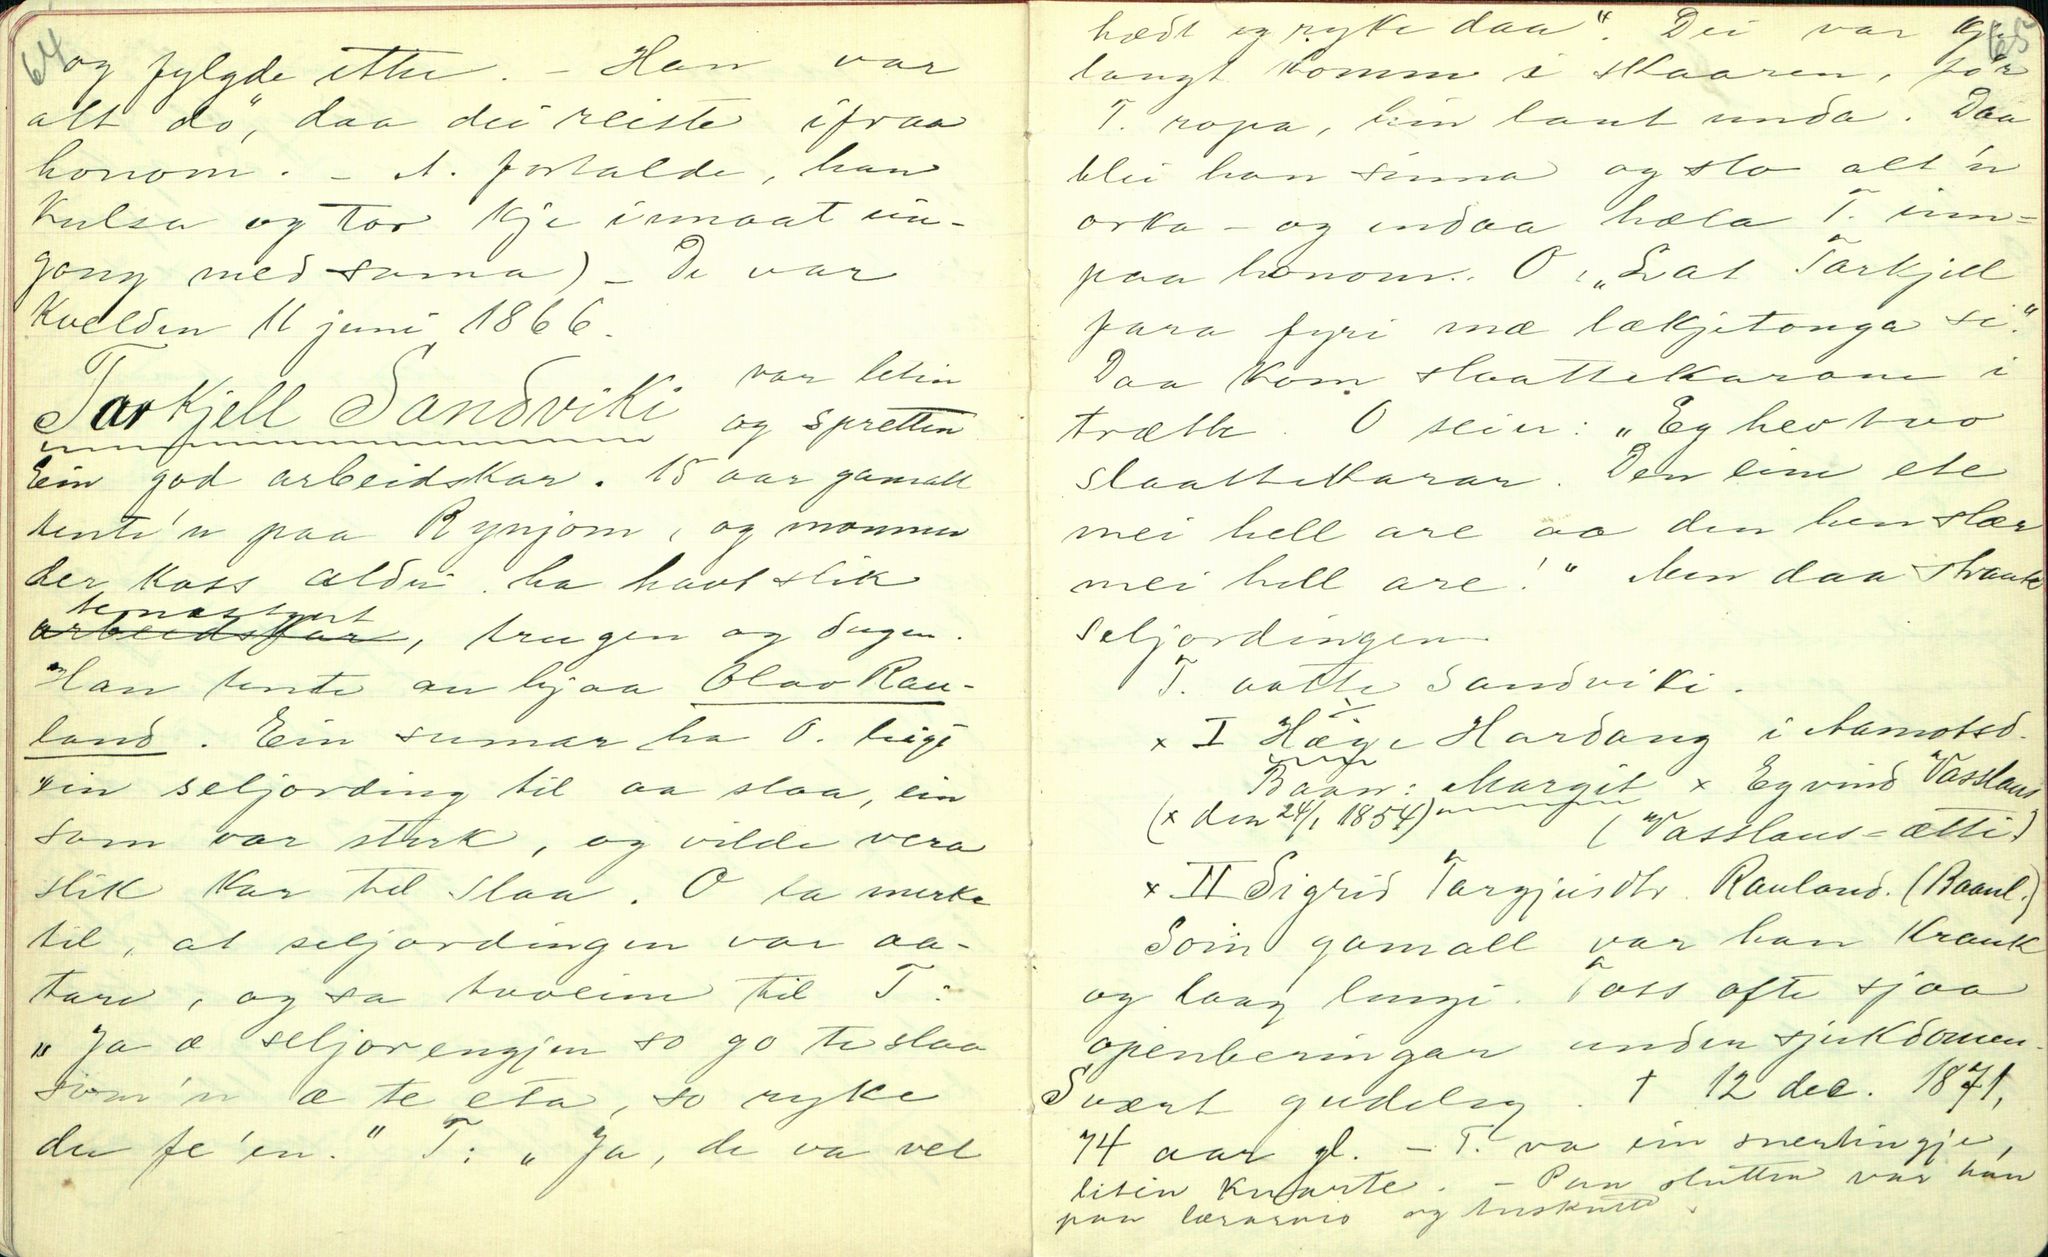 64
og fylgde ette. - Han var
alt dö, daa dei reiste ifraa
honom. - A. fortalde, han
kulsa og tor kje imaat ein-
gong med suma) - De var
kvelden 11 juni 1866.
Tarkjell Sandviki var liten
og spretten
Ein god arbeidskar. 15 aar gamall
tente 'n paa Rynjom, og monnen
der kass aldri ha havt slik
tenastgut
arbeidskar, trugen og dugen.
Han tente au hjaa Olav Rau-
land. Ein sumar ha O. leigt
ein seljording til aa slaa, ein
som var sterk, og vilde vera
slik kar til slaa. O la merke
til, at seljordingen var aa-
tare, og sa tvoeine til T:
"Ja æ seljorengjen so go te slaa
som 'n æ te eta, so ryke
du fe 'en." T: "Ja, de va vel
65
hædt eg ryke daa". Dei var kje
langt komne i skaaren, för
T. ropa, hin laut unda. Daa
blei han sinna og slo alt 'n
orka - og endaa hæla T. inn-
paa honom. O: "Lat Tarkjell
fara fyri mæ lækjetonga si."
Daa kom slaattekarane i
trætte. O seier: "Eg hev tvo
slaattekarar. Den eine ete
mei hell are aa den hen slær
mei hell are!" Men daa
seljordingen
T. aatte Sandviki.
x I Hæge Hardang i Aamotsd.
Baan: Margit x Eyvind Vasslaus
(x den 24/1 1854) (Vasslaus-ætti)
x II Sigrid Targjeisdtr. Rauland. (Baanl.)
Som gamall var han krank
og laag lengi. Tass ofte sjaa
openberingar under sjukdomen.
Svært gudeleg. † 12 dec. 1871,
74 aar gl. - T. va ein snertingje,
liten knarte. - Paa slutten var han
paa og